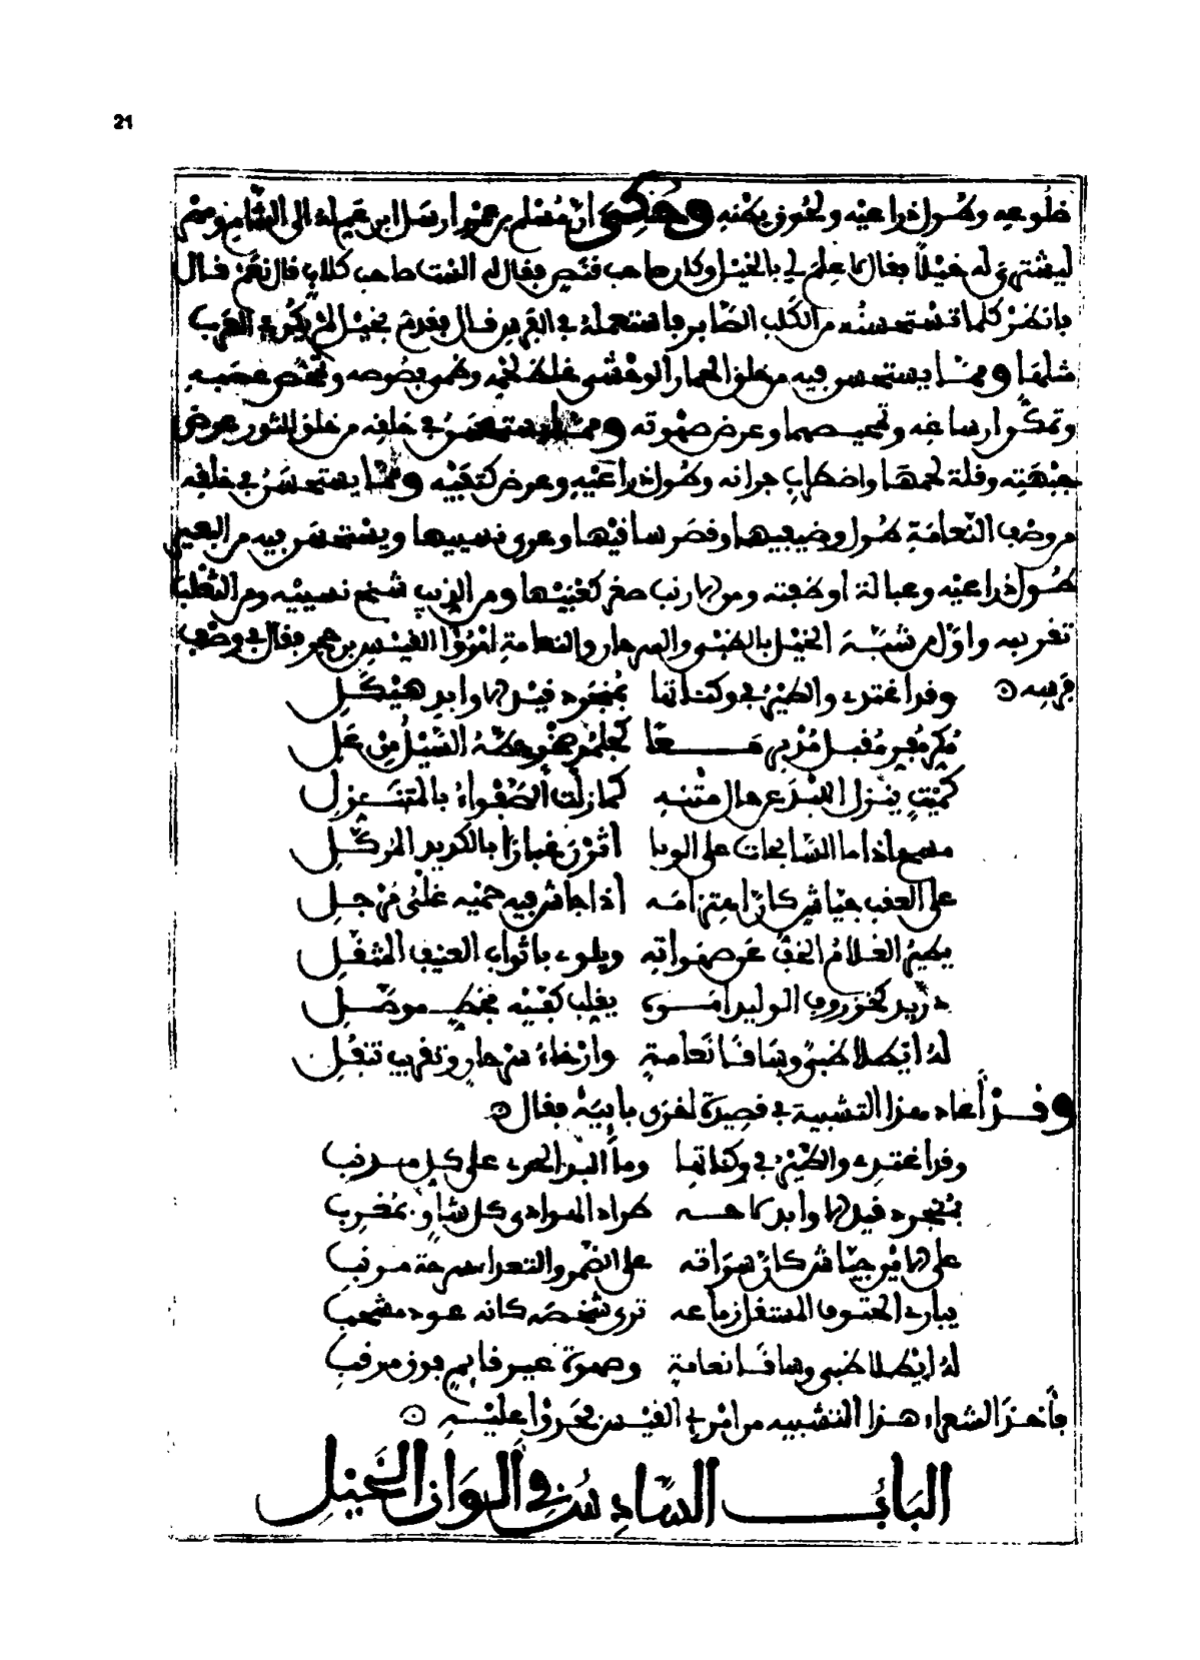 21
ضلوعه وطول ذراعيه ولحوق بطنه وحكي ان مسلم بن عمرو ارسل ابن عم له الى الشام ومصر
ليشتري له خيلا فقال لا علم لي بالخيل وكان صاحب قنص فقال له الست صاحب كلاب قال نعم قال
فانظر كلما تستحسنه من الكلب الصابر فاستعمله في الفرس قال فقدم بخيل لم يكن في العرب
مثلها ومما يستحسن فيه من خلق الحمار الوحشي غلظ لحمه وظمو فصوصه وتمحص عصبه
وتمكن ارساغه وتمحيصها وعرض صهوته ومما يستحسن في خلقه من خلق الثور عرض
جبهته وقلة لحمها واضطراب جرانه وطول ذراعيه وعرض كتفيه ومما يستحسن في خلقه
من وصف النعامة طول وضيفيها وقصر ساقيها وعري نسييها ويستحسن فيه من البعير
طول ذراعيه وعبالة اوظفته ومن الارنب صغر كعبيها ومن الذيب شنج نسييه ومن الثعلب
تقريبه واول من شبه الخيل بالظبي والسرحان والنعامة امرؤ القيس بن حجر فقال في وصف
فرسه
وقد اغتدي والطير في وكناتها بمنجرد قيد الاوابد هيكل
مكر مفر مقبل مدبر معا كجلمود صخر حطه السيل من عل
كميت يزل اللبد عن حال متنه كما زلت الصفواء بالمتنزل
مسح اذا ما السابحات على الونا اثرن غبارا بالكديد المركل
على العقب جياش كان اهتزامه اذا جاش فيه حميه غلي مرجل
يطير الغلام الخف عن صهواته ويلوي باثواب العنيف المثقل
درير كخذروف الوليد امره يقلب كفيه بخيط موصل
له ايطلا ظبي وساقا نعامة وارخاء سرحان وتقريب تتفل
وقد اعاد هذا التشبيه في قصيدة اخرى بايية فقال
وقد اغتدي والطير في وكناتها وماء الندا يجري على كل مذنب
بمنجرد قيد الاوابد لاحه طراد الهوادي كل شاو مغرب
على الاين جياش كان سراته على الضمر والتعداء سرحة مرقب
يباري الخنوف المستقل زماعه ترى شخصه كانه عود مشجب
له ايطلا ظبي وساقا نعامة وصهوة عير قايم فوق مرقب
فاخذ الشعراء هذا التشبيه من امرئ القيس فجروا عليه
الباب السادس في الوان الخيل